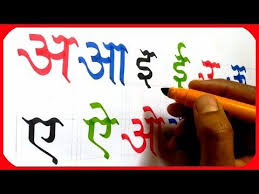 अ आ इ ई उ ऊ
ए ऐ ओ